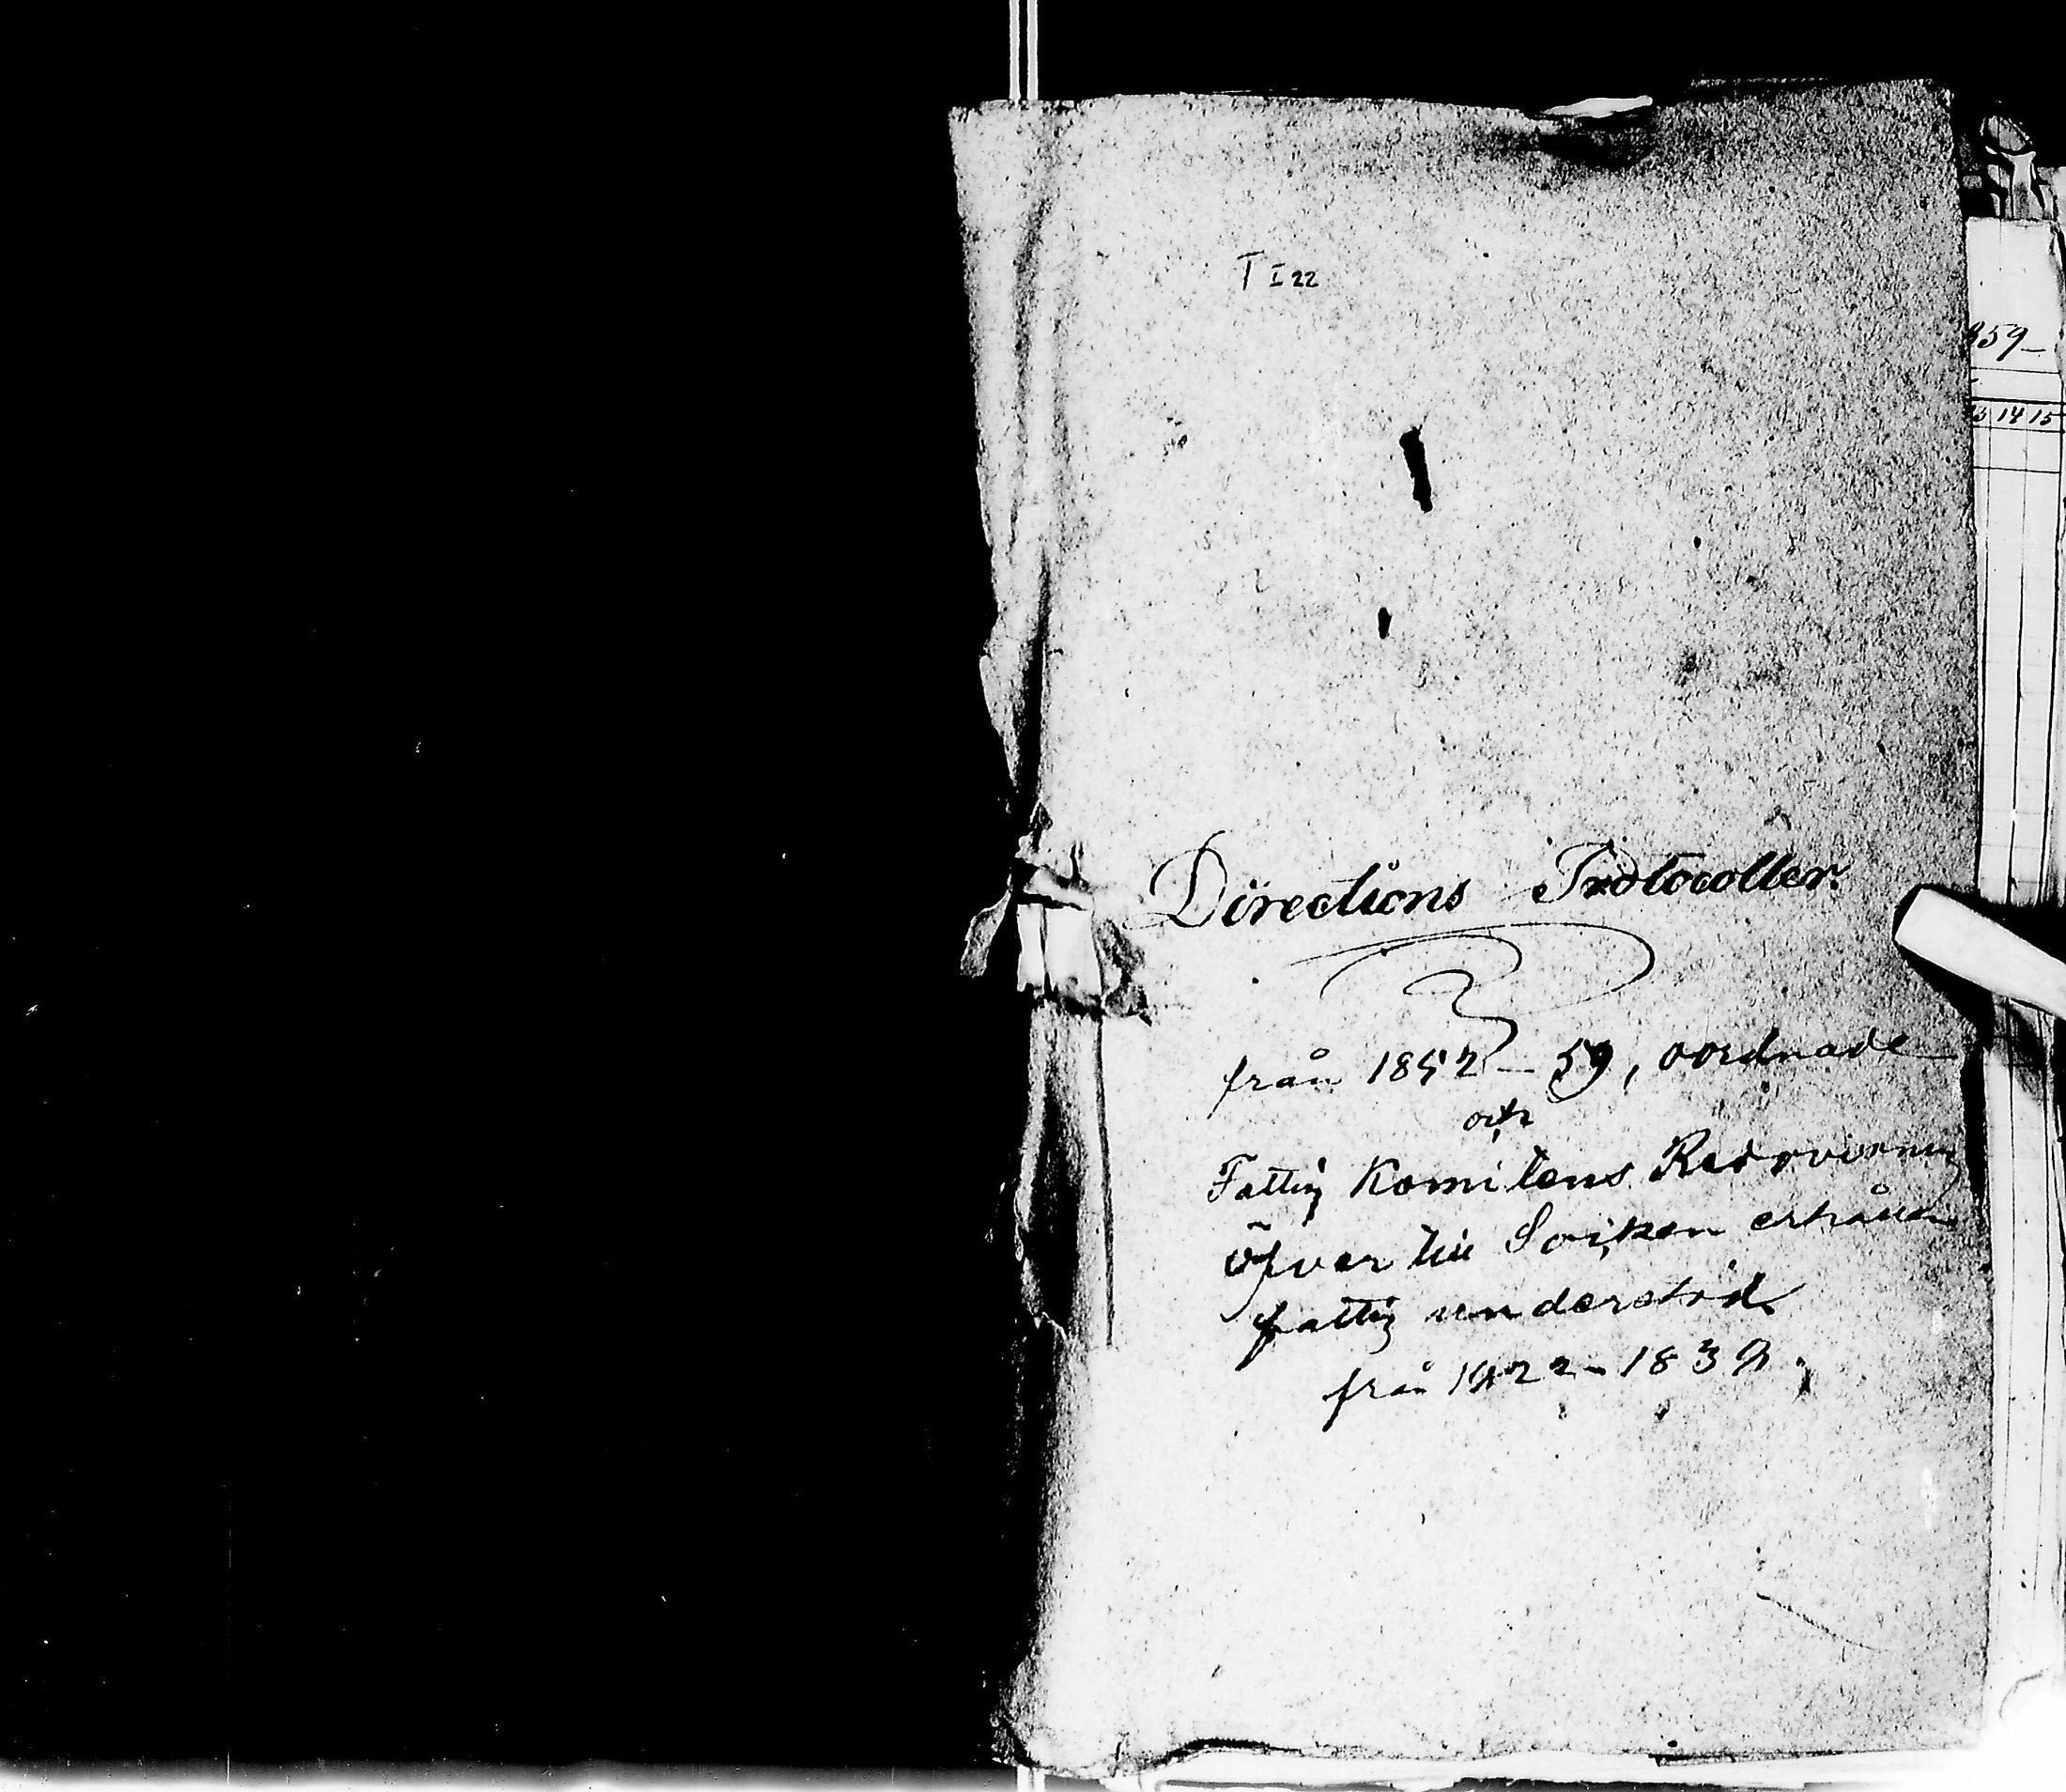 T I 22
859-
14 15
Directions Protocoller.
från 1852 - 59, oordnade
och
Fattig Komitens Redovisning
öfver till Socken erhållen
fattig understöd
från 1822 - 1839.